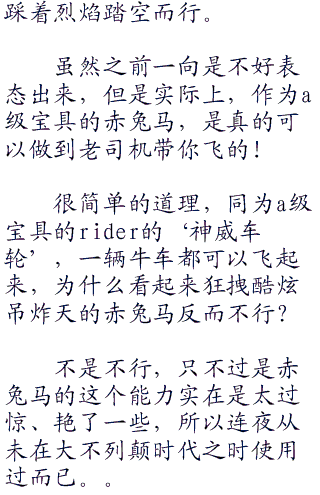 踩着烈焰踏空而行。
虽然之前一向是不好表
态出来，但是实际上，作为a
级宝具的赤兔马，是真的可
以做到老司机带你飞的！
很简单的道理，同为a级
宝具的rider的‘神威车
轮’，一辆牛车都可以飞起
来，为什么看起来狂拽酷炫
吊炸天的赤兔马反而不行？
不是不行，只不过是赤
兔马的这个能力实在是太过
惊、艳了一些，所以连夜从
未在大不列颠时代之时使用
过而已。。